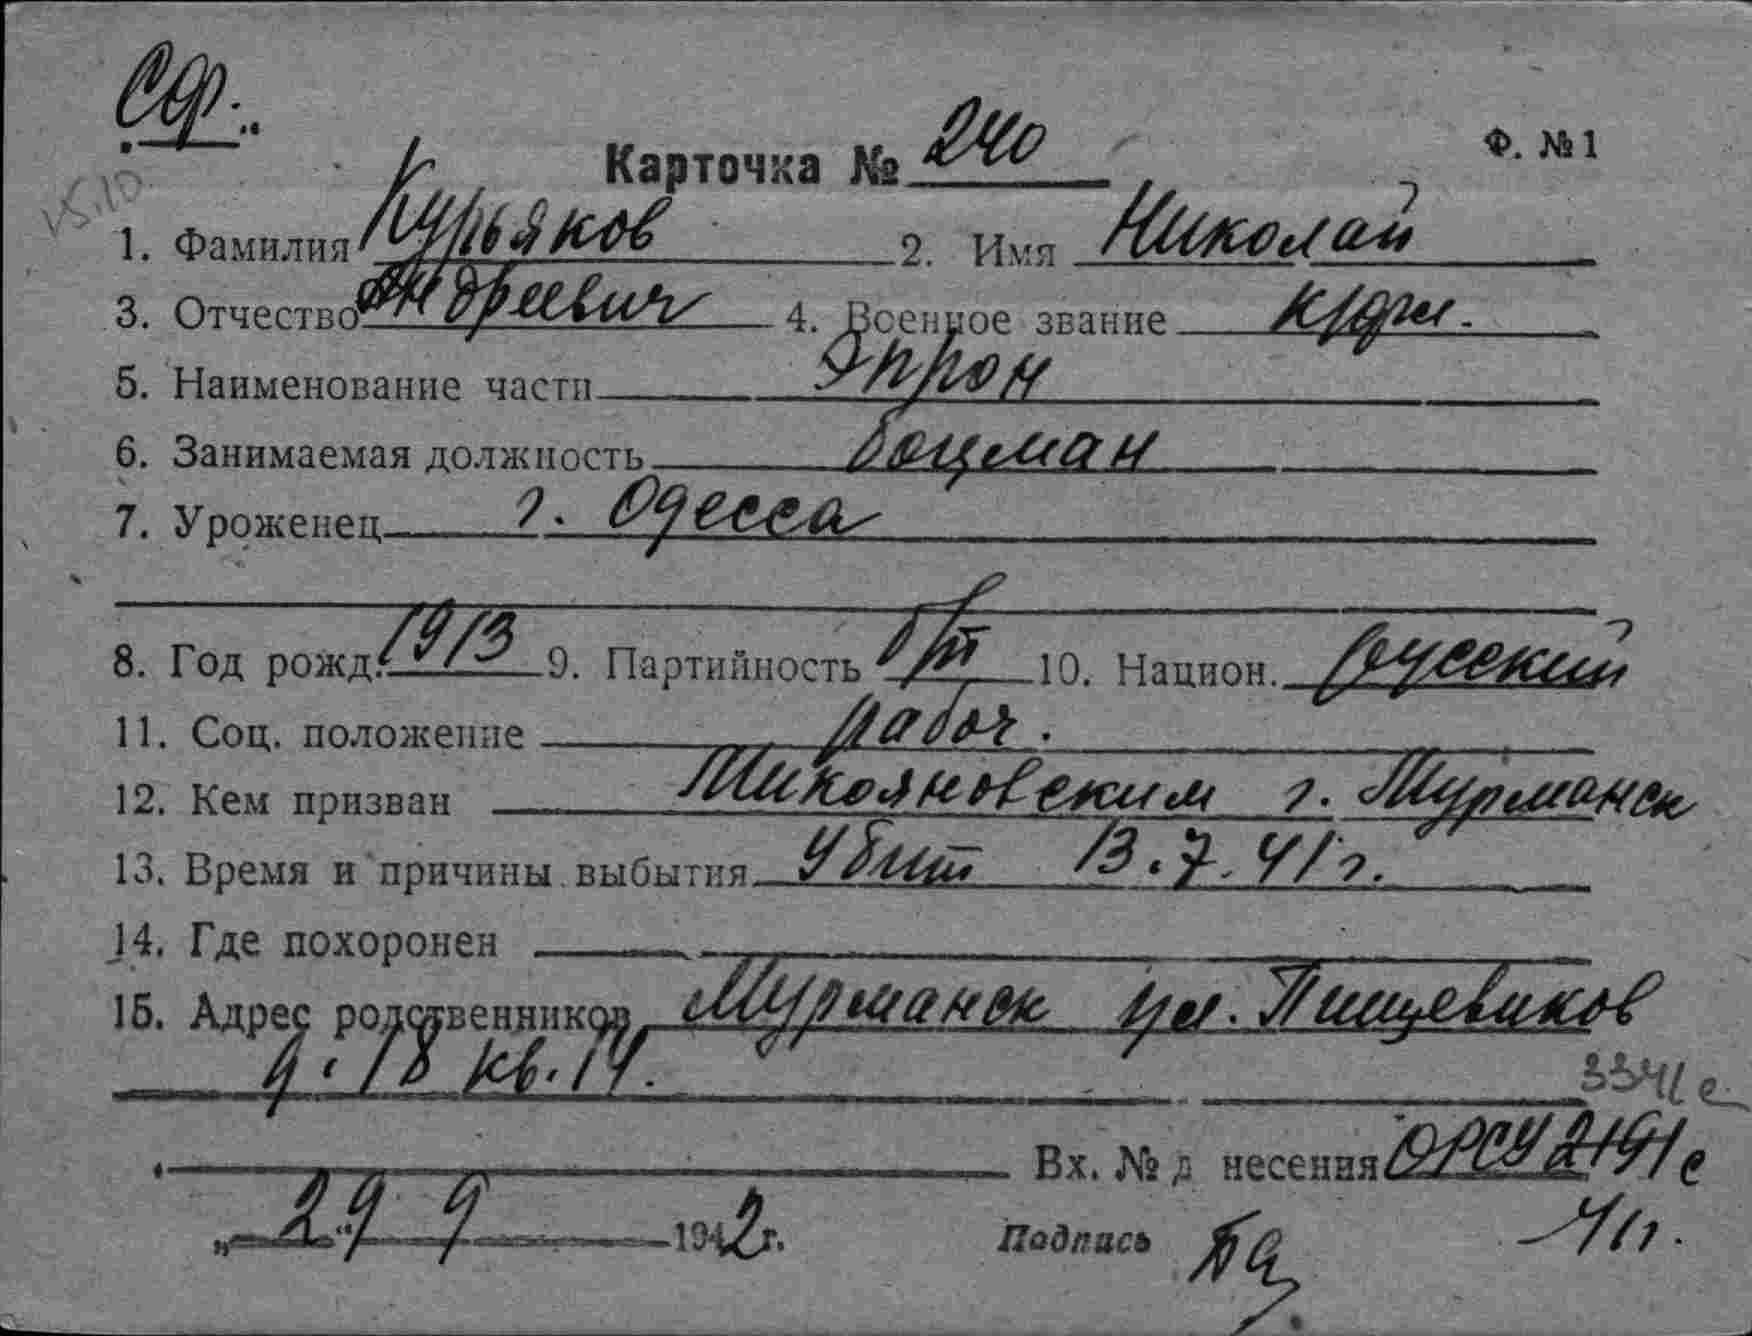 СФ.
Карточка № 240
Ф. № 1
15.10
1. Фамилия Курьяков 2. Имя Николай
3. Отчество Андреевич 4. Военное звание к/фл.
5. Наименование части Эпрон
6. Занимаемая должность боцман
7. Уроженец г. Одесса
8. Год рожд. 1913 9. Партийность б/п 10. Национ. русский
11. Соц. положение рабоч.
12. Кем призван Микояновским г. Мурманск
13. Время и причины выбытия Убит 13.7.41г.
14. Где похоронен
15. Адрес родственников Мурманск ул. Пищевиков
д. 18 кв. 14.
3341с
Вх. № д несения ОРСУ 2191с
„29" 9 1942г. Подпись